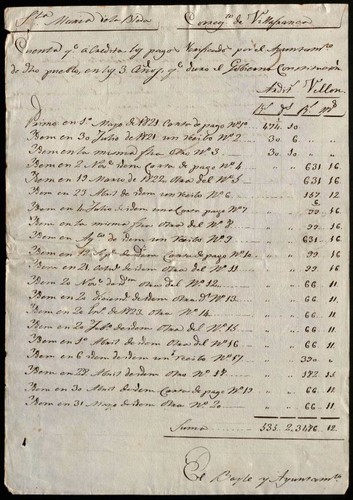 Sta. Maria de la Bida Correg.to de Villafranca
Cuenta q.e acredita los pagos verificados por el Ayuntam.to
de dho pueblo, en los 3 Años q.e duró el Gobierno Constitucion.l
Ardit.s Vellon.
Primo en 1º Mayo de 1821 Carta de pago Nº 1º 474 " 10
Ittem en 30 Julio de 1821 un recibo Nº 2 30 " 6
Ittem en la misma fha otro Nº 3 30 " 10
Ittem en 2 Nov.e de idem Carta de pago Nº 4 " " 631 " 16
Ittem en 19 Marzo de 1822 otra del Nº 5 " " 631 " 16
Ittem en 23 Abril de idem un recibo Nº 6 " " 167 " 12
Ittem en Julio de idem una Carta pago Nº 7 " " 99 " 16
Ittem en la misma fha otra del Nº 8 " " 99 " 16
Ittem en Ag.to de idem un recibo Nº 9 " " 631 " 16
Ittem en de idem Carta de pago Nº 10 " " 99 " 16
Ittem en 21 de idem otra del Nº 11 " " 99 " 16
Ittem en 20 Nov.e de idem otra del Nº 12 " " 66 " 11
Ittem en 20 Diciem.e de idem otra del Nº 13 " " 66 " 11
Ittem en 20 de 1823 otra Nº 14 " " 66 " 11
Ittem en 20 de idem otra del Nº 15 " " 66 " 11
Ittem en 1º Abril de idem otra del Nº 16 " " 66 " 11
Ittem en 6 idem de idem un recibo Nº 17 " " 320 "
Ittem en 28 Abril de idem otra Nº 18 " " 172 " 15
Ittem en 30 Abril de idem Carta de pago Nº 19 " " 66 " 11
Ittem en 31 Mayo de idem otra Nº 20 " " 66 " 11
Suma 535 " 2 3476 " 12
El Bayle y Ayuntam.to